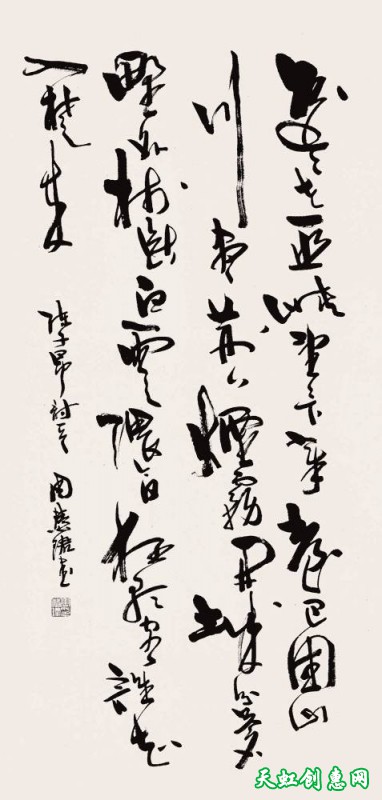 遥々去巫峡望々下章台巴国山
川尽荆门煙雾开城分苍
野外树断白雲隈今日狂歌客谁知
入楚来
陈子昂诗 周慧珺书
天虹创惠网